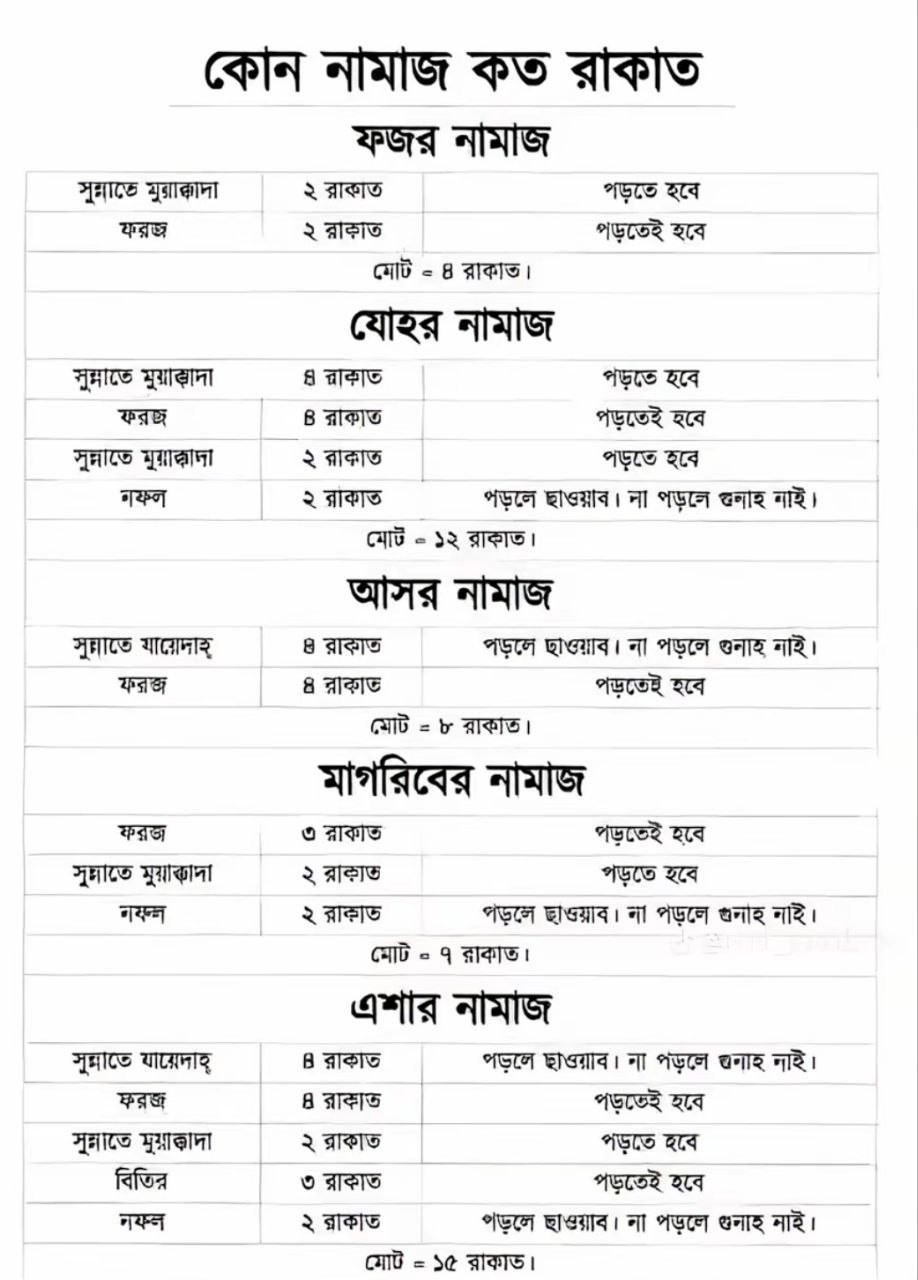 কোন নামাজ কত রাকাত
ফজর নামাজ
সুন্নাতে মুয়াক্কাদা ২ রাকাত পড়তে হবে
ফরজ ২ রাকাত পড়তেই হবে
মোট = ৪ রাকাত।
যোহর নামাজ
সুন্নাতে মুয়াক্কাদা ৪ রাকাত পড়তে হবে
ফরজ ৪ রাকাত পড়তেই হবে
সুন্নাতে মুয়াক্কাদা ২ রাকাত পড়তে হবে
নফল ২ রাকাত পড়লে ছাওয়াব। না পড়লে গুনাহ নাই।
মোট = ১২ রাকাত।
আসর নামাজ
সুন্নাতে যায়েদাহ্ ৪ রাকাত পড়লে ছাওয়াব। না পড়লে গুনাহ নাই।
ফরজ ৪ রাকাত পড়তেই হবে
মোট = ৮ রাকাত।
মাগরিবের নামাজ
ফরজ ৩ রাকাত পড়তেই হবে
সুন্নাতে মুয়াক্কাদা ২ রাকাত পড়তে হবে
নফল ২ রাকাত পড়লে ছাওয়াব। না পড়লে গুনাহ নাই।
মোট = ৭ রাকাত।
এশার নামাজ
সুন্নাতে যায়েদাহ্ ৪ রাকাত পড়লে ছাওয়াব। না পড়লে গুনাহ নাই।
ফরজ ৪ রাকাত পড়তেই হবে
সুন্নাতে মুয়াক্কাদা ২ রাকাত পড়তে হবে
বিতির ৩ রাকাত পড়তেই হবে
নফল ২ রাকাত পড়লে ছাওয়াব। না পড়লে গুনাহ নাই।
মোট = ১৫ রাকাত।